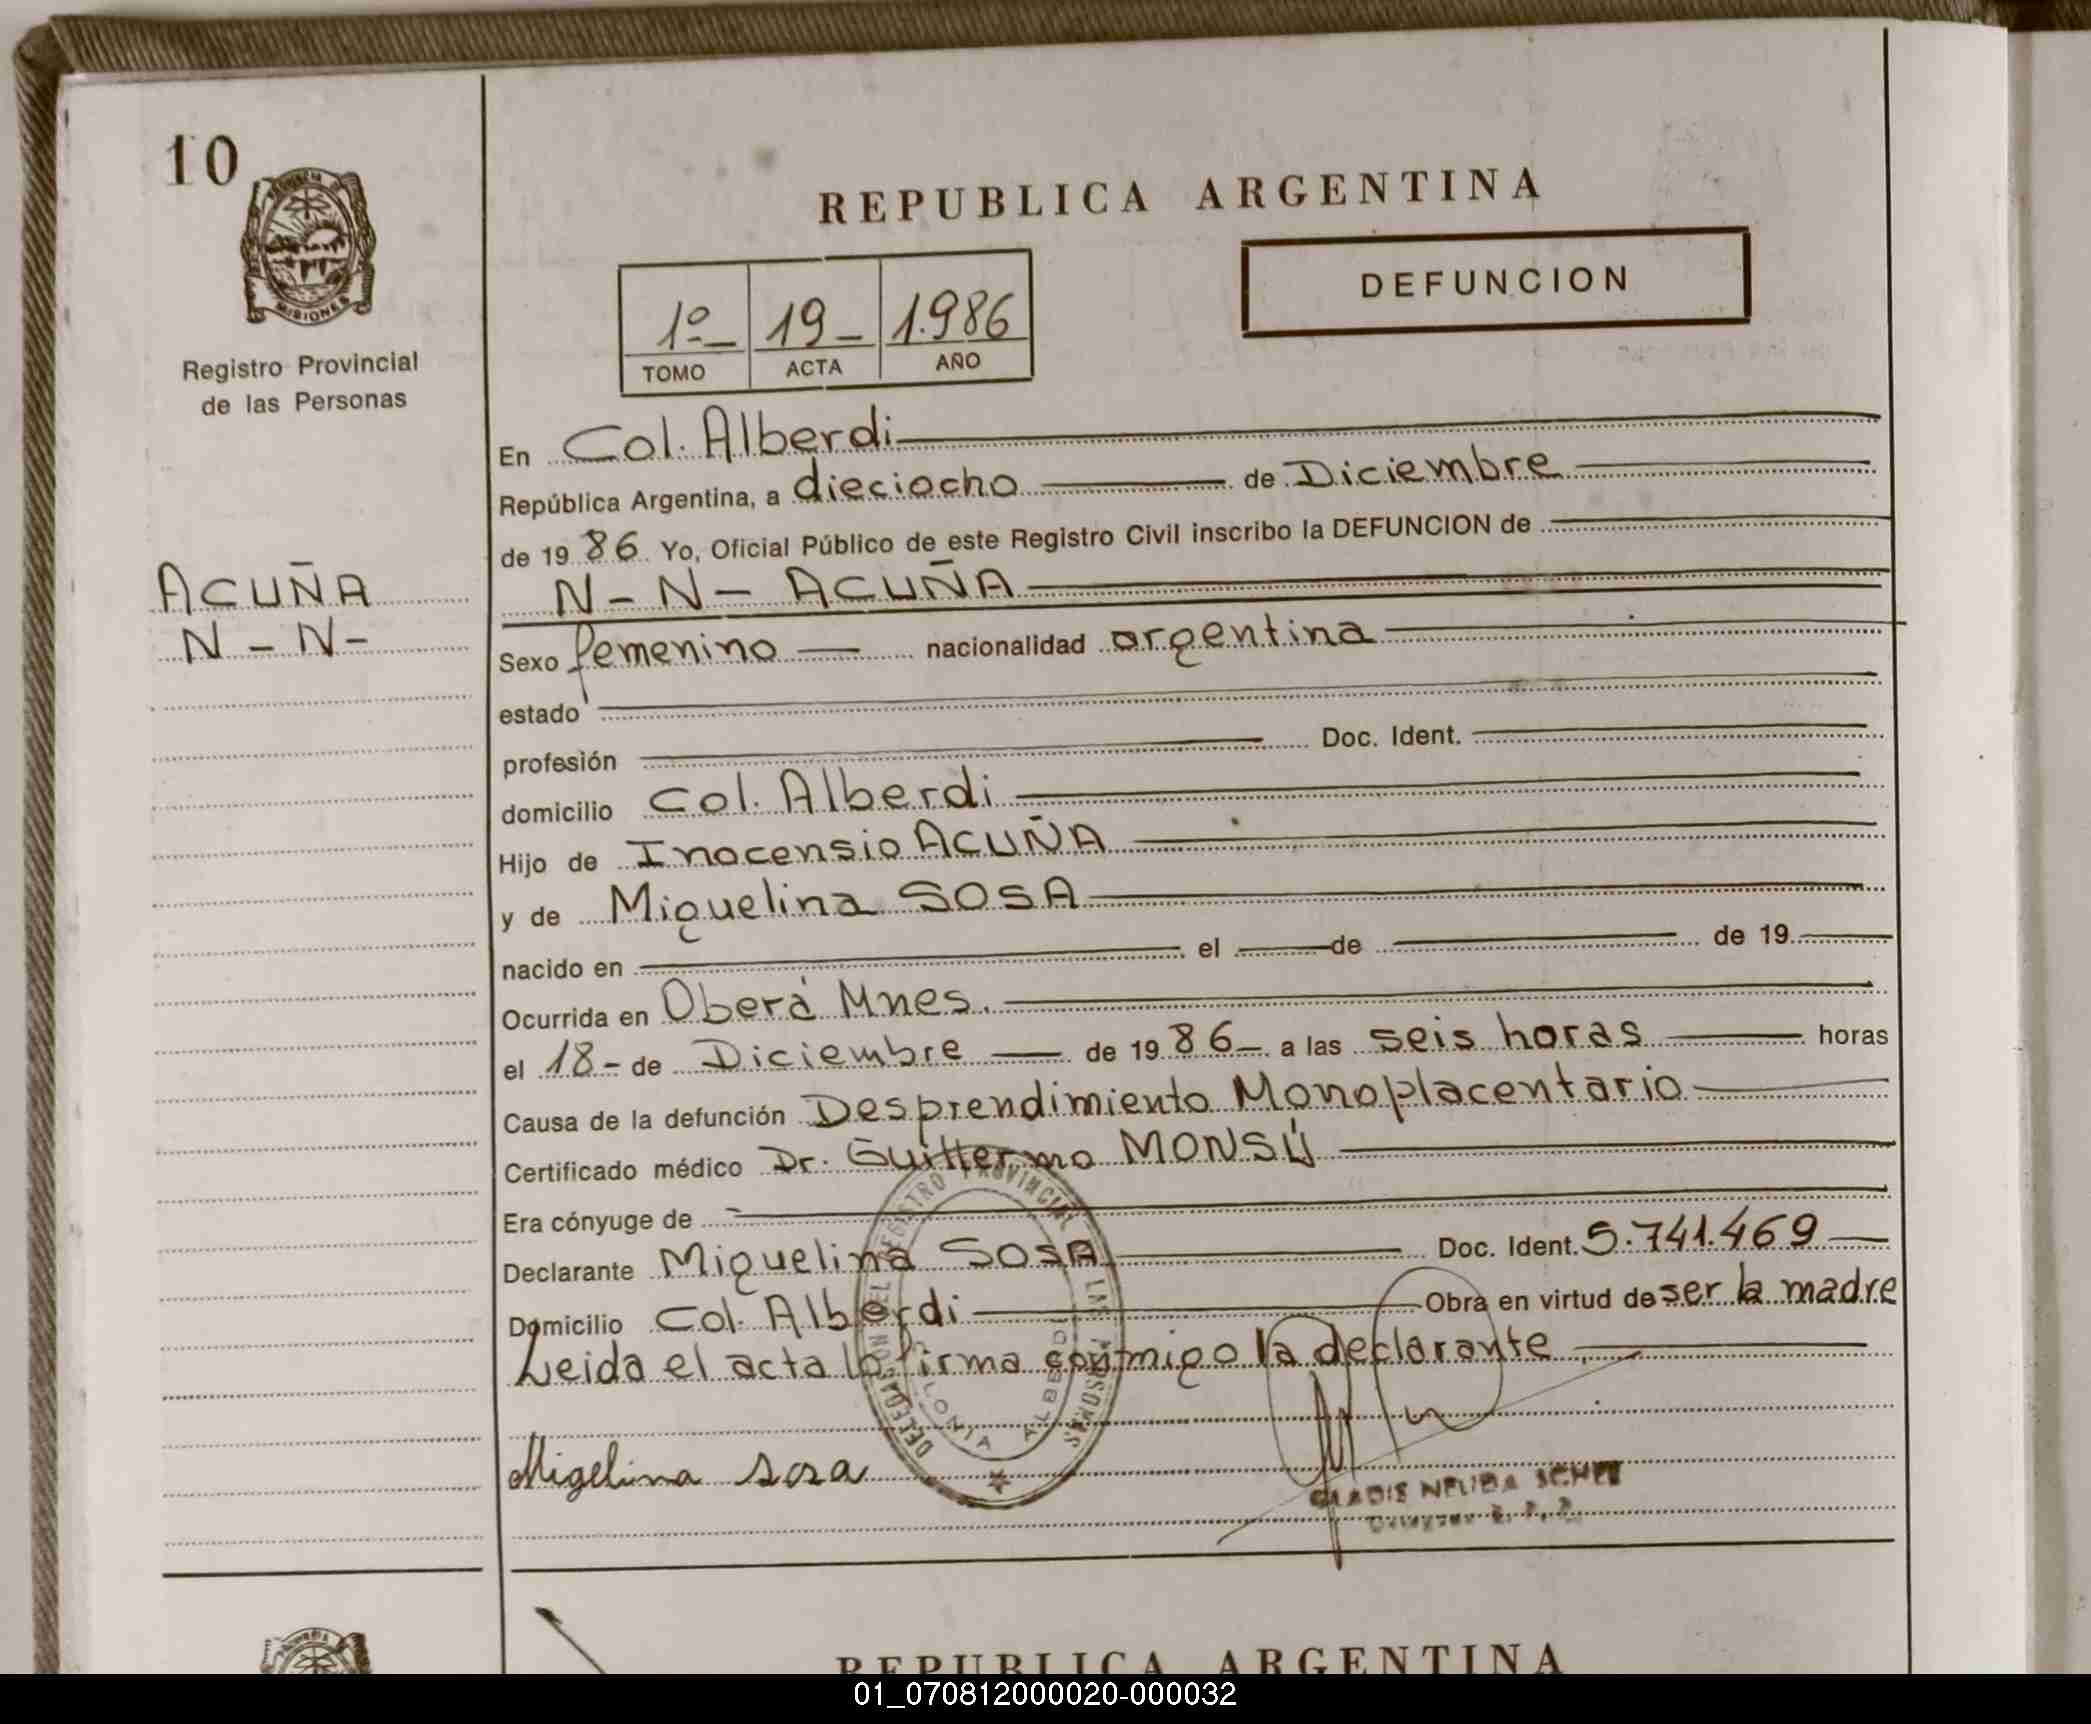 10
PROVINCIA DE
MISIONES
Registro Provincial
de las Personas
REPUBLICA ARGENTINA
1º 19 1.986
TOMO ACTA AÑO
DEFUNCION
ACUÑA
N - N -
En Col. Alberdi
República Argentina, a dieciocho de Diciembre
de 19 86 Yo, Oficial Público de este Registro Civil inscribo la DEFUNCION de
N - N - ACUÑA
Sexo femenino nacionalidad argentina
estado
profesión Doc. Ident.
domicilio Col. Alberdi
Hijo de Inocensio ACUÑA
y de Miquelina SOSA
nacido en el de de 19
Ocurrida en Oberá Mnes.
el 18 - de Diciembre de 19 86 a las seis horas horas
Causa de la defunción Desprendimiento Monoplacentario
Certificado médico Dr. Guillermo MONSÚ
Era cónyuge de
Declarante Miquelina SOSA Doc. Ident. 5.741.469
Domicilio Col. Alberdi Obra en virtud de ser la madre
Leida el acta la firma conmigo la declarante
Migelina sosa
DELEGACION DEL REGISTRO PROVINCIAL LAS PERSONAS
COLONIA ALBERDI
GLADIS NELIDA
REPUBLICA ARGENTINA
01_070812000020-000032